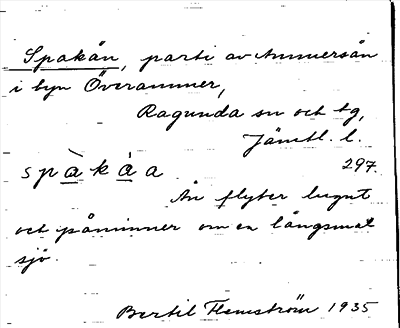 Spakån, parti av Ammersån
i byn Överammer,
Ragunda sn och tg,
Jämtl. l.
spàkàa 297
Ån flyter lugnt
och påminner om en långsmal
sjö.
Bertil Flemström 1935